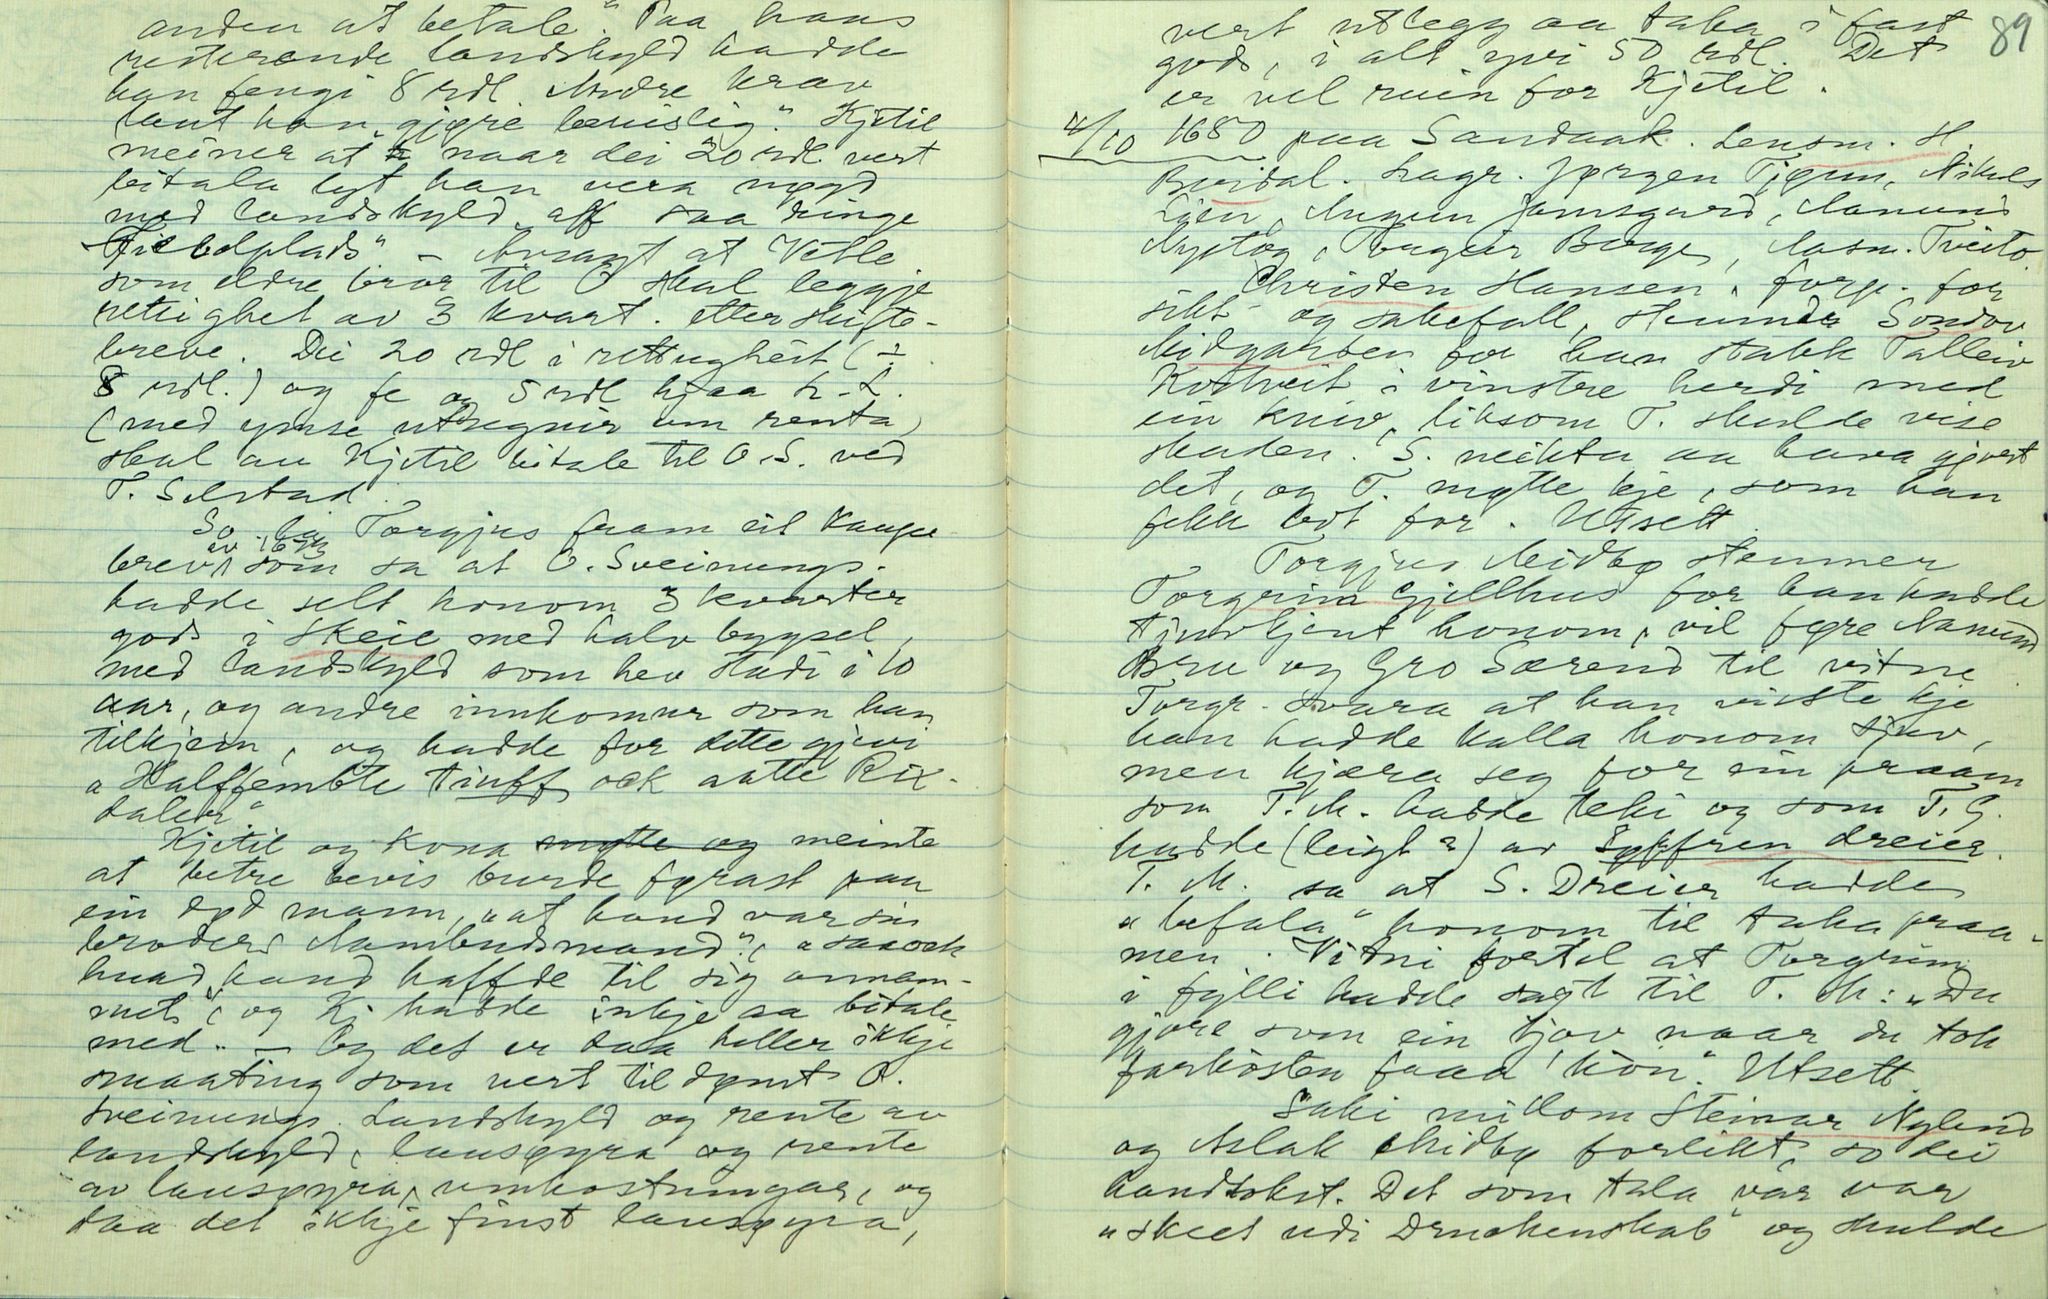 anden at betale." Paa hans
resterande landskyld hadde
han fengi 8 rdl. Andre krav
laut han "gjøre bevislig". Kjetil
meiner at naar dei 20 rdl. vert
betala lyt han vera nøgd
med landskyld "aff saa ringe
Fieldplads" – Avsagt at Vetle
som eldre bror til O skal leggje
rettighet av 3 kvart. etter skifte-
breve. Dei 20 rdl i rettugheit (÷
8 rdl.) og fe og 5 rdl hjaa
(med ymse utregnir um renta)
skal au Kjetil betale til O.S. ved
T. Selstad.
So la Torgjus fram eit kaupe
brev som sa at O. Sveinungs.
hadde selt honom 3 kvarter
gods i Skeie med halv bygsel,
med landskyld som hev stadi i 10
aar, og andre innkomur som han
tilkjem, og hadde for dette gjevi
"Halffembte tinff ock aatte Rix-
daler"
Kjetil og kona møtte og meinte
at betre bevis burde førast paa
ein død mann, "at hand var sin
broders Aambudsmand", "saa och
huad hand haffde til sig annam-
met", og Kj. hadde inkje aa betale
med. – Og det er daa heller ikkje
smaating som vert tildømt O.
Sveinungs. Landskyld og rente av
landskyld, lausøyra og rente
av lausøyra, umkostningar, og
daa det ikkje finst lausøyra,
89
vert utlegg aa taka i fast
gods, i alt yvi 50 rdl. Det
er vel ruin for Kjetil.
4/10 1680 paa Sandaak. Lensm. H.
Bridal. Lagr. Jørgen Tjønn, Nikuls
Lien, Augun Jamsgard, Aamund
Nystog, Torgeir Berge, Aasm. Tveito
Christen Hansen, forp. for
sikt- og sakefall, stemnde Sondov
Midgarden for han stakk Talleiv
Kostveit i vinstre herdi med
ein kniv, liksom T. skulde vise
skaden. S. neikta aa hava gjort
det, og T. møtte kje, som han
fekk bot for. Utsett.
Torgjus Midbø stemner
Torgrim Gjellhus for han hadde
tjuvkjent honom, vil føre Aamund
Bru og Gro Særend til vitne
Torgr. svara at han visste kje
han hadde kalla honom tjuv,
men kjæra seg for sin praam
som T.M. hadde teki og som T.G.
hadde (leigt?) av Søffren dreier.
T.M. sa at S. Dreier hadde
"befala" honom til taka praa-
men. Vitni fortel at Torgrim
i fylli hadde sagt til T.M: "Du
gjore som ein tjov naar du tok
farkosten fraa kon". Utsett.
Saki millom Steinar Nylend
og Aslak Midbø forlikt, so dei
handtokst. Det som tala var var
"skeet udi Druckenskab" og skulde